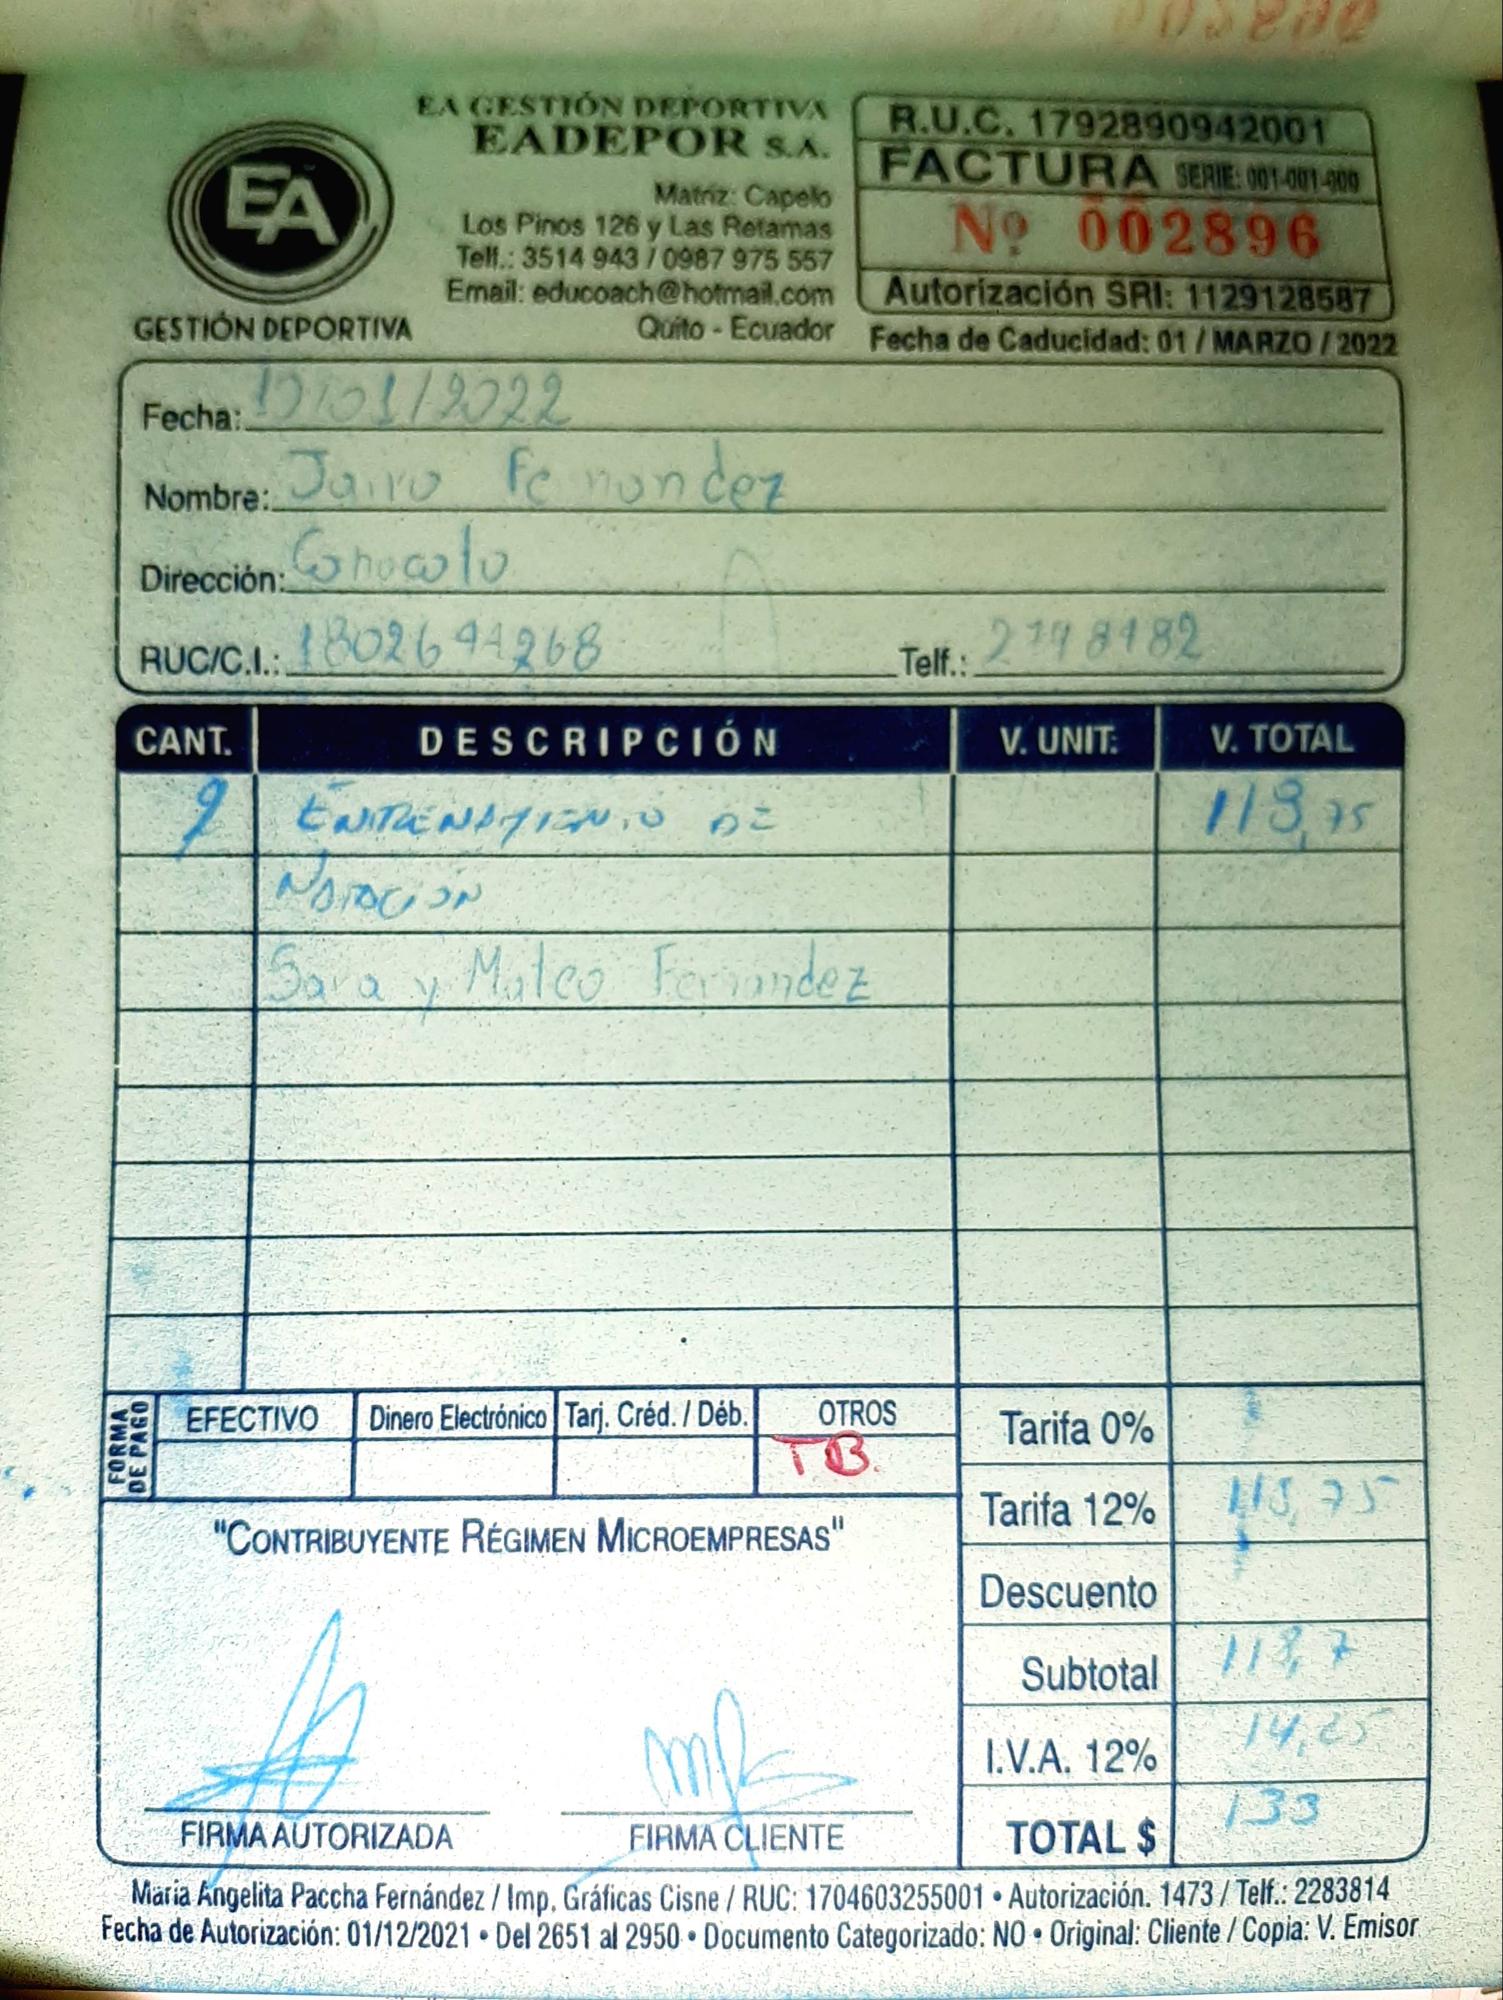 EA
GESTIÓN DEPORTIVA
EA GESTIÓN DEPORTIVA
EADEPOR S.A.
Matriz: Capelo
Los Pinos 126 y Las Retamas
Telf.: 3514 943 / 0987 975 557
Email: educoach@hotmail.com
Quito - Ecuador
R.U.C. 1792890942001
FACTURA SERIE: 001-001-000
Nº 002896
Autorización SRI: 1129128587
Fecha de Caducidad: 01 / MARZO / 2022
Fecha: /01/2022
Nombre: Jairo Fernandez
Dirección: Conocoto
RUC/C.I.: Telf.:
CANT. DESCRIPCIÓN V. UNIT. V. TOTAL
2 ENTRENAMIENTO DE 118,75
NATACIÓN
Sara y Mateo Fernandez
FORMA DE PAGO EFECTIVO Dinero Electrónico Tarj. Créd. / Déb. OTROS
TB.
Tarifa 0%
Tarifa 12% 118,75
Descuento
Subtotal 118,7
I.V.A. 12% 14,25
TOTAL $ 133
"CONTRIBUYENTE RÉGIMEN MICROEMPRESAS"
FIRMA AUTORIZADA FIRMA CLIENTE
María Angelita Paccha Fernández / Imp. Gráficas Cisne / RUC: 1704603255001 • Autorización. 1473 / Telf.: 2283814
Fecha de Autorización: 01/12/2021 • Del 2651 al 2950 • Documento Categorizado: NO • Original: Cliente / Copia: V. Emisor